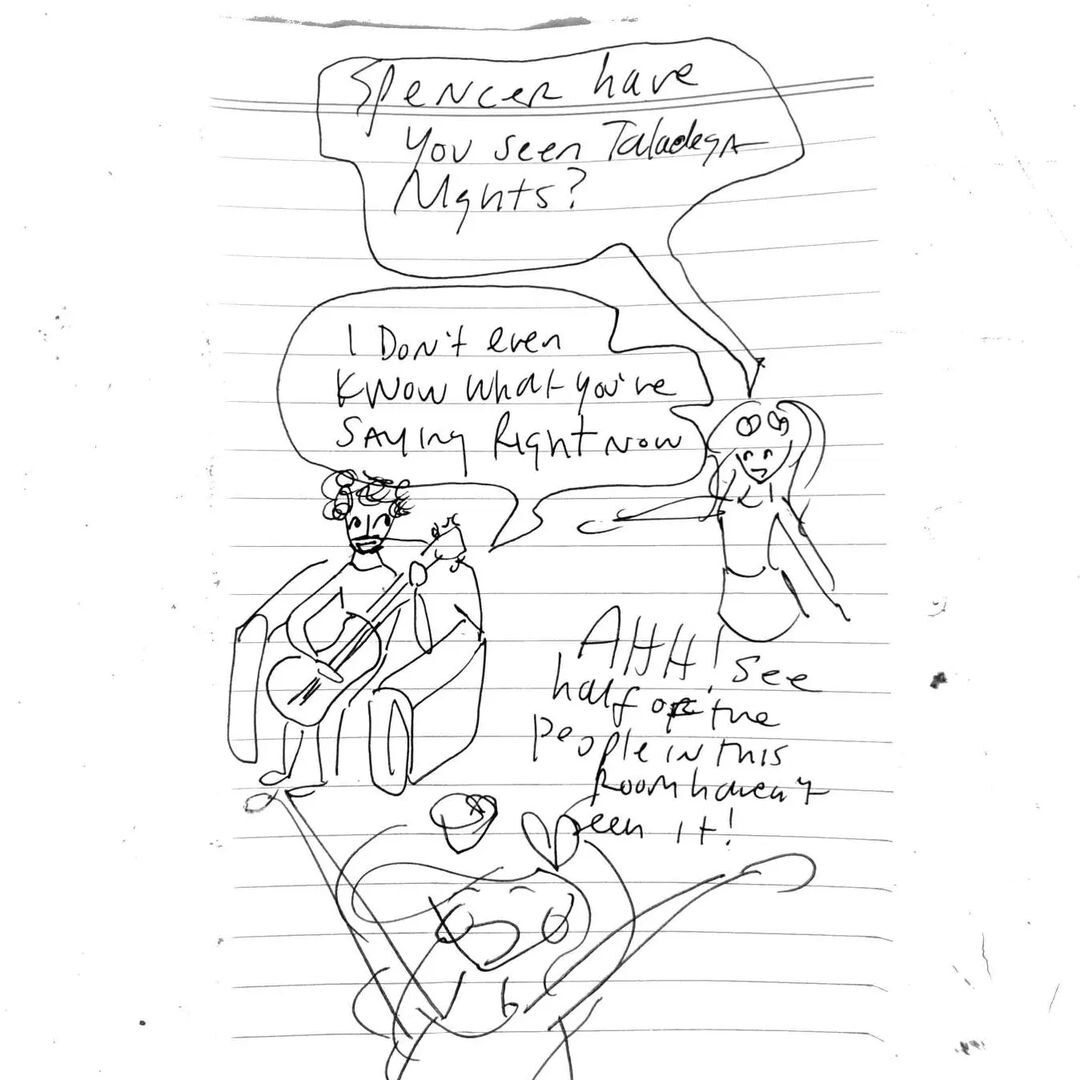 Spencer have
you seen Taladega
Nights?
I Don't even
know what you're
saying Right now
AHH! see
half of the
people in this
room haven't
seen it!